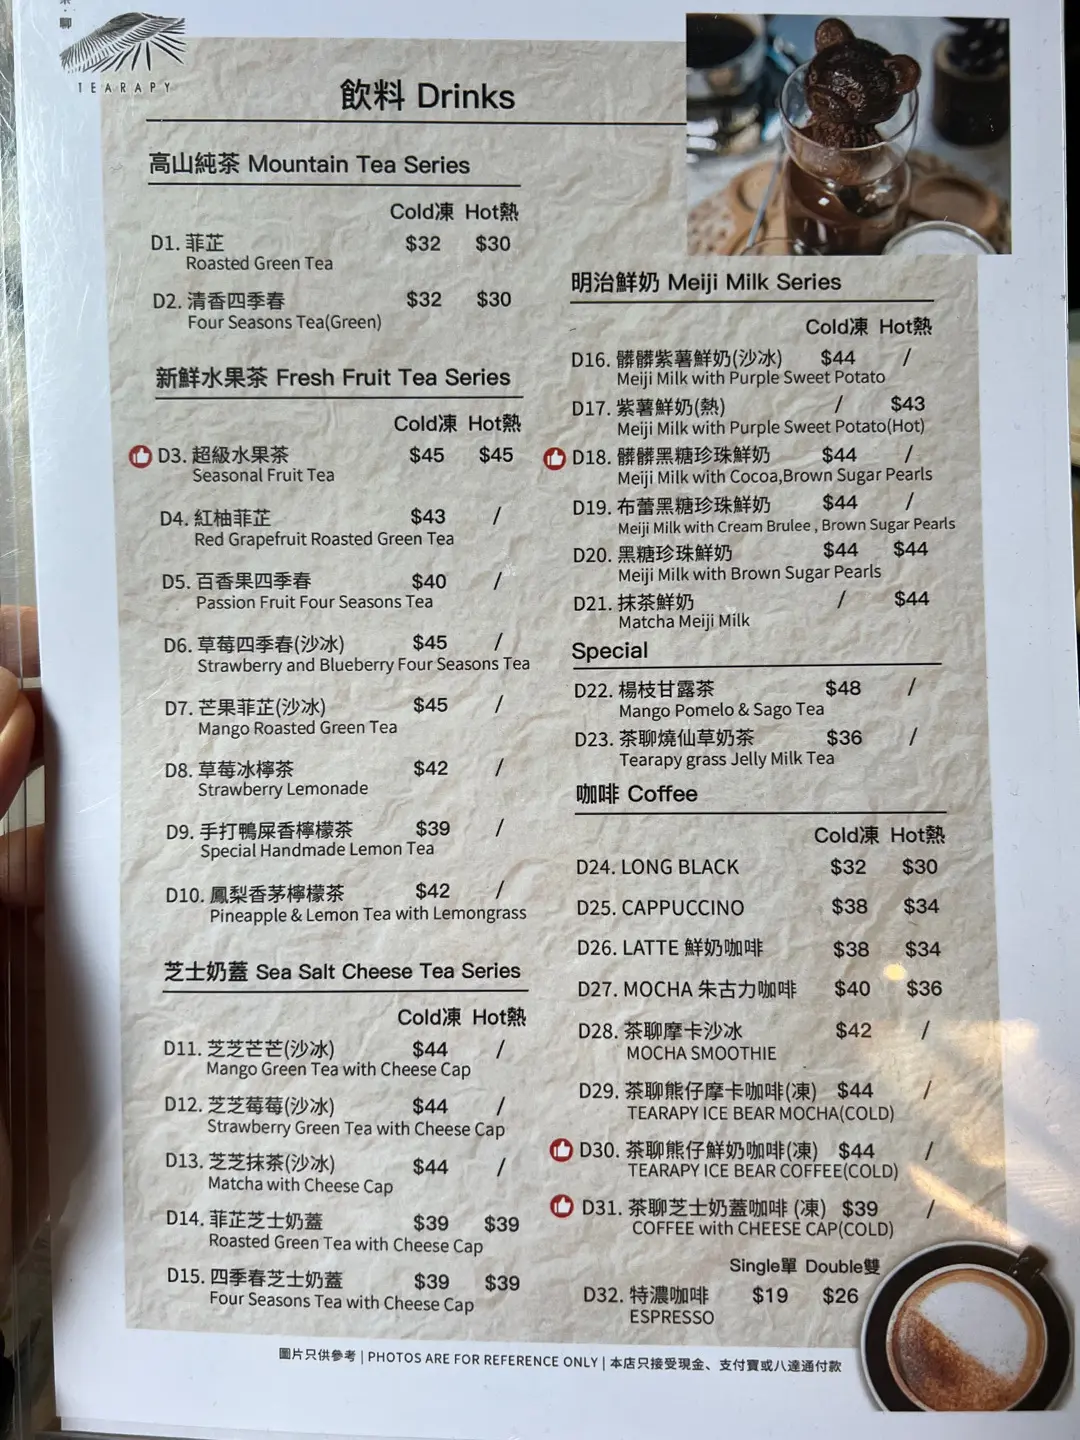 聊
TEARAPY
飲料 Drinks
高山純茶 Mountain Tea Series
Cold凍 Hot熱
D1. 菲芷 $32 $30
Roasted Green Tea
D2. 清香四季春 $32 $30
Four Seasons Tea(Green)
新鮮水果茶 Fresh Fruit Tea Series
Cold凍 Hot熱
D3. 超級水果茶 $45 $45
Seasonal Fruit Tea
D4. 紅柚菲芷 $43 /
Red Grapefruit Roasted Green Tea
D5. 百香果四季春 $40 /
Passion Fruit Four Seasons Tea
D6. 草莓四季春(沙冰) $45 /
Strawberry and Blueberry Four Seasons Tea
D7. 芒果菲芷(沙冰) $45 /
Mango Roasted Green Tea
D8. 草莓冰檸茶 $42 /
Strawberry Lemonade
D9. 手打鴨屎香檸檬茶 $39 /
Special Handmade Lemon Tea
D10. 鳳梨香茅檸檬茶 $42 /
Pineapple & Lemon Tea with Lemongrass
芝士奶蓋 Sea Salt Cheese Tea Series
Cold凍 Hot熱
D11. 芝芝芒芒(沙冰) $44 /
Mango Green Tea with Cheese Cap
D12. 芝芝莓莓(沙冰) $44 /
Strawberry Green Tea with Cheese Cap
D13. 芝芝抹茶(沙冰) $44 /
Matcha with Cheese Cap
D14. 菲芷芝士奶蓋 $39 $39
Roasted Green Tea with Cheese Cap
D15. 四季春芝士奶蓋 $39 $39
Four Seasons Tea with Cheese Cap
明治鮮奶 Meiji Milk Series
Cold凍 Hot熱
D16. 髒髒紫薯鮮奶(沙冰) $44 /
Meiji Milk with Purple Sweet Potato
D17. 紫薯鮮奶(熱) / $43
Meiji Milk with Purple Sweet Potato(Hot)
D18. 髒髒黑糖珍珠鮮奶 $44 /
Meiji Milk with Cocoa,Brown Sugar Pearls
D19. 布蕾黑糖珍珠鮮奶 $44 /
Meiji Milk with Cream Brulee , Brown Sugar Pearls
D20. 黑糖珍珠鮮奶 $44 $44
Meiji Milk with Brown Sugar Pearls
D21. 抹茶鮮奶 / $44
Matcha Meiji Milk
Special
D22. 楊枝甘露茶 $48 /
Mango Pomelo & Sago Tea
D23. 茶聊燒仙草奶茶 $36 /
Tearapy grass Jelly Milk Tea
咖啡 Coffee
Cold凍 Hot熱
D24. LONG BLACK $32 $30
D25. CAPPUCCINO $38 $34
D26. LATTE 鮮奶咖啡 $38 $34
D27. MOCHA 朱古力咖啡 $40 $36
D28. 茶聊摩卡沙冰 $42 /
MOCHA SMOOTHIE
D29. 茶聊熊仔摩卡咖啡(凍) $44 /
TEARAPY ICE BEAR MOCHA(COLD)
D30. 茶聊熊仔鮮奶咖啡(凍) $44 /
TEARAPY ICE BEAR COFFEE(COLD)
D31. 茶聊芝士奶蓋咖啡 (凍) $39 /
COFFEE with CHEESE CAP(COLD)
Single單 Double雙
D32. 特濃咖啡 $19 $26
ESPRESSO
圖片只供參考 | PHOTOS ARE FOR REFERENCE ONLY | 本店只接受現金、支付寶或八達通付款